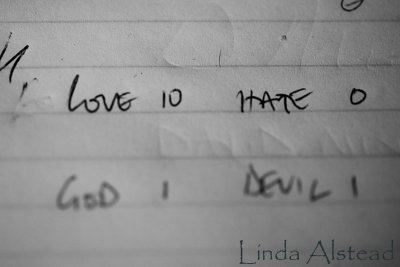 LOVE 10 HATE 0
GOD 1 DEVIL 1
Linda Alstead